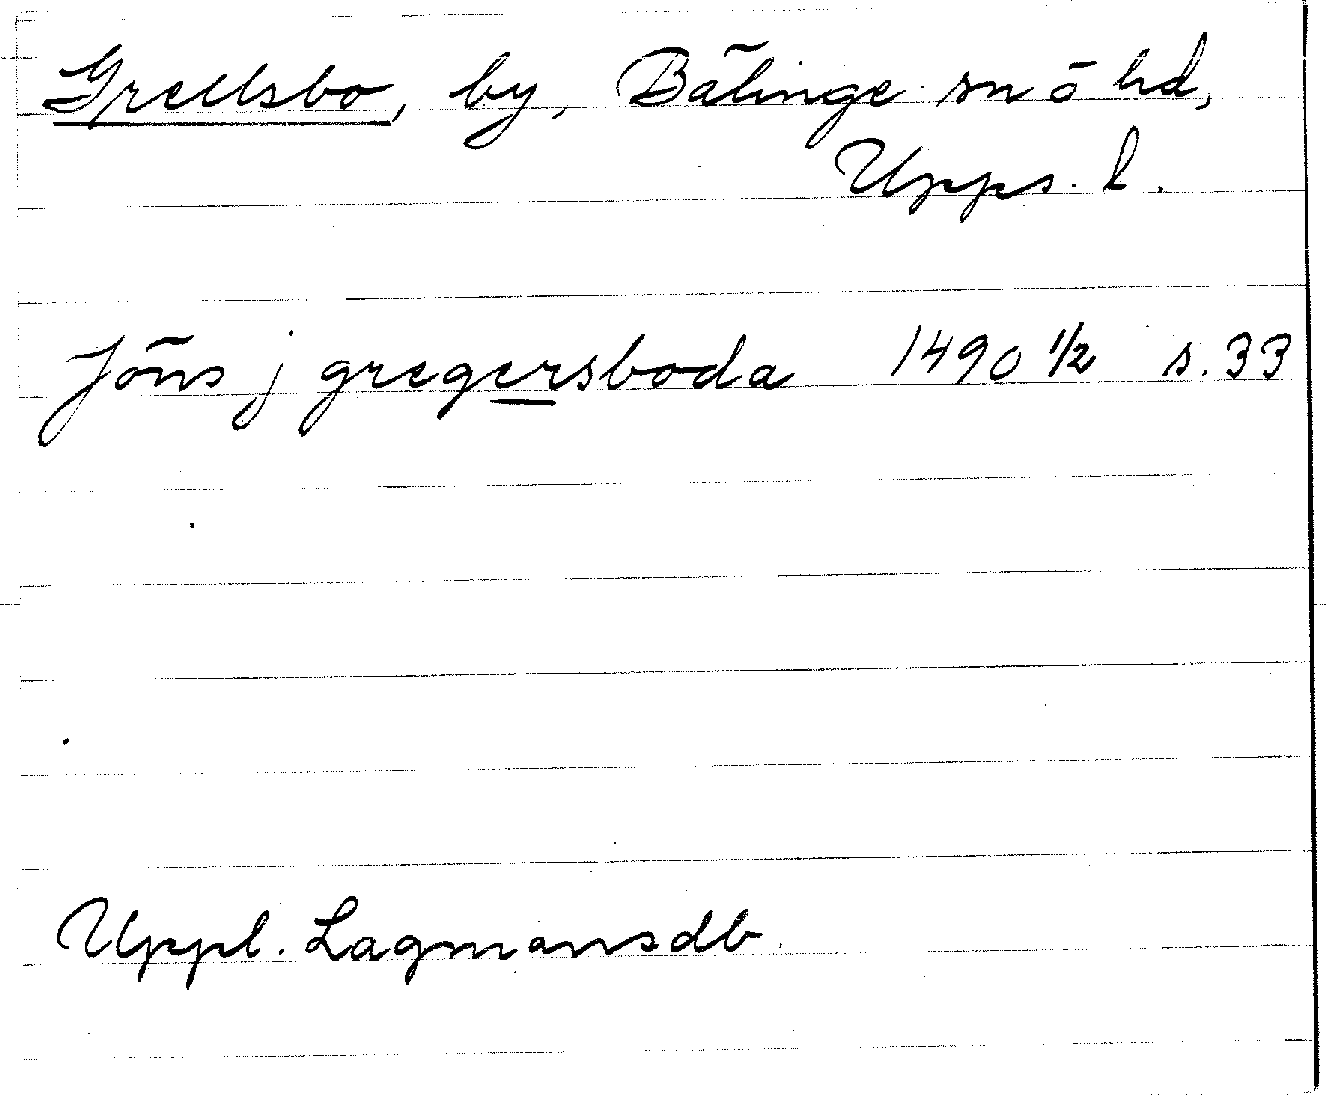 Grellsbo, by, Bälinge sn ö hd,
Upps. l.
Jöns j gregersboda 1490 1/2 s. 33
Uppl. Lagmansdb.